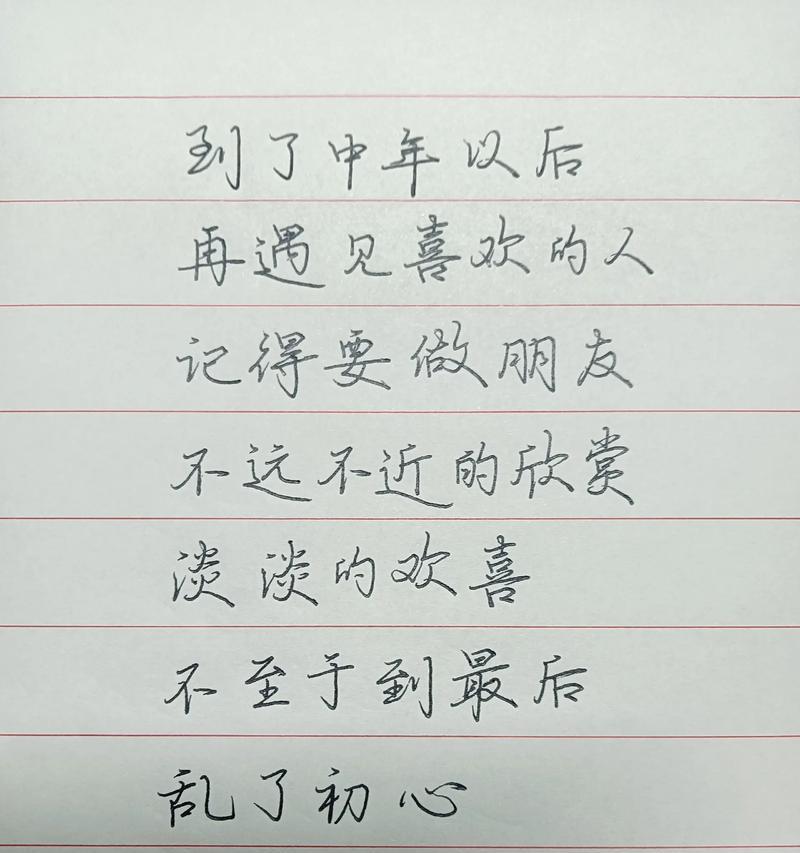 到了中年以后
再遇见喜欢的人
记得要做朋友
不远不近的欣赏
淡淡的欢喜
不至于到最后
乱了初心